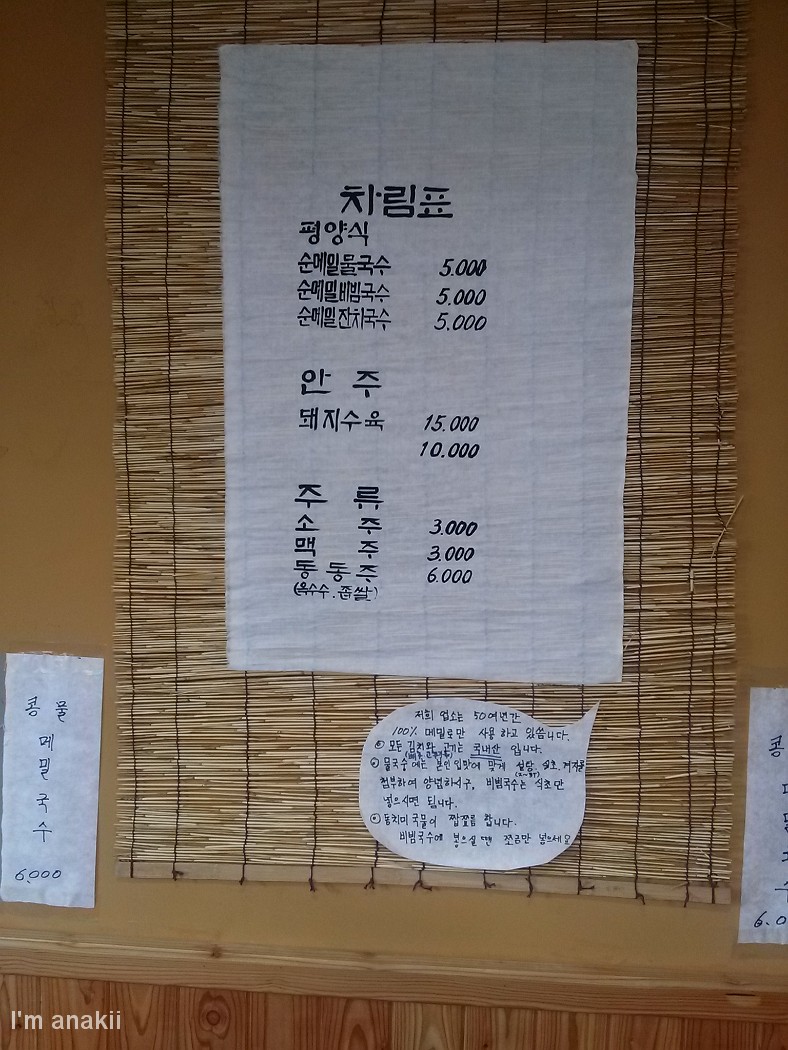 차림표
평양식
순메밀물국수 5.000
순메밀비빔국수 5.000
순메밀잔치국수 5.000
안 주
돼지수육 15.000
10.000
주 류
소 주 3.000
맥 주 3.000
동동주 6.000
(옥수수.좁쌀)
콩 물
메
밀
국
수
6.000
저희 업소는 50여년간
100% 메밀로만 사용하고 있습니다.
모든 김치와 고기는 국내산 입니다.
물국수에는 본인 입맛에 맞게 설탕, 식초, 겨자를
첨부하여 양념하시구, 비빔국수는 식초만
넣으시면 됩니다.
동치미 국물이 짭짤름 합니다.
비빔국수에 넣으실땐 쪼금만 넣으세요
콩
6.0
I'm anakii